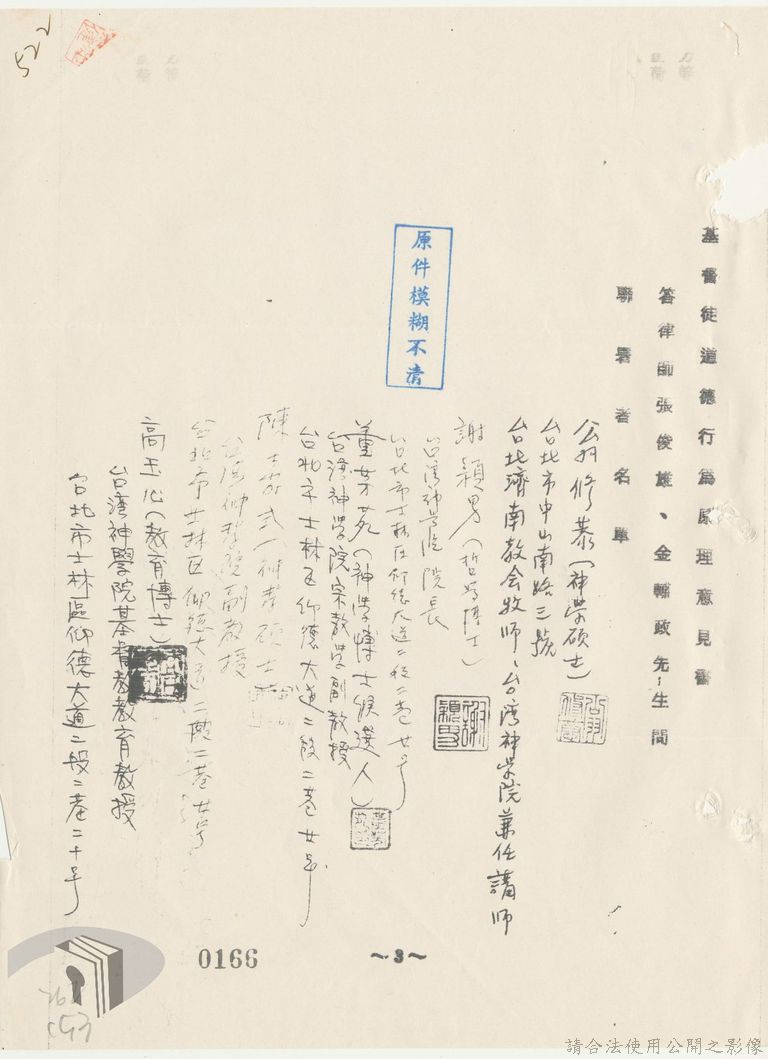 基督徒道德行為原理意見書
答律師張俊雄、金輔政先生問
聯署者名單
翁修恭（神学碩士）
台北市中山南路三號
台北濟南教会牧師、台湾神学院兼任講師
謝穎男（哲学博士）
台湾神学院院長
台北市士林区仰德大道二段二巷廿号
董芳苑（神学博士候選人）
台湾神学院宗教学副教授
台北市士林区仰德大道二段二巷廿号
陳 式（神学碩士
台湾神学院副教授
台北市士林区仰德大道二段二巷廿号
高玉心（教育博士）
台湾神學院基督教教育教授
台北市士林區仰德大道二段二巷二十号
原件模糊不清
522
0166
~3~
請合法使用公開之影像